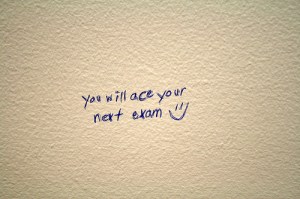 you will ace your
next exam :)